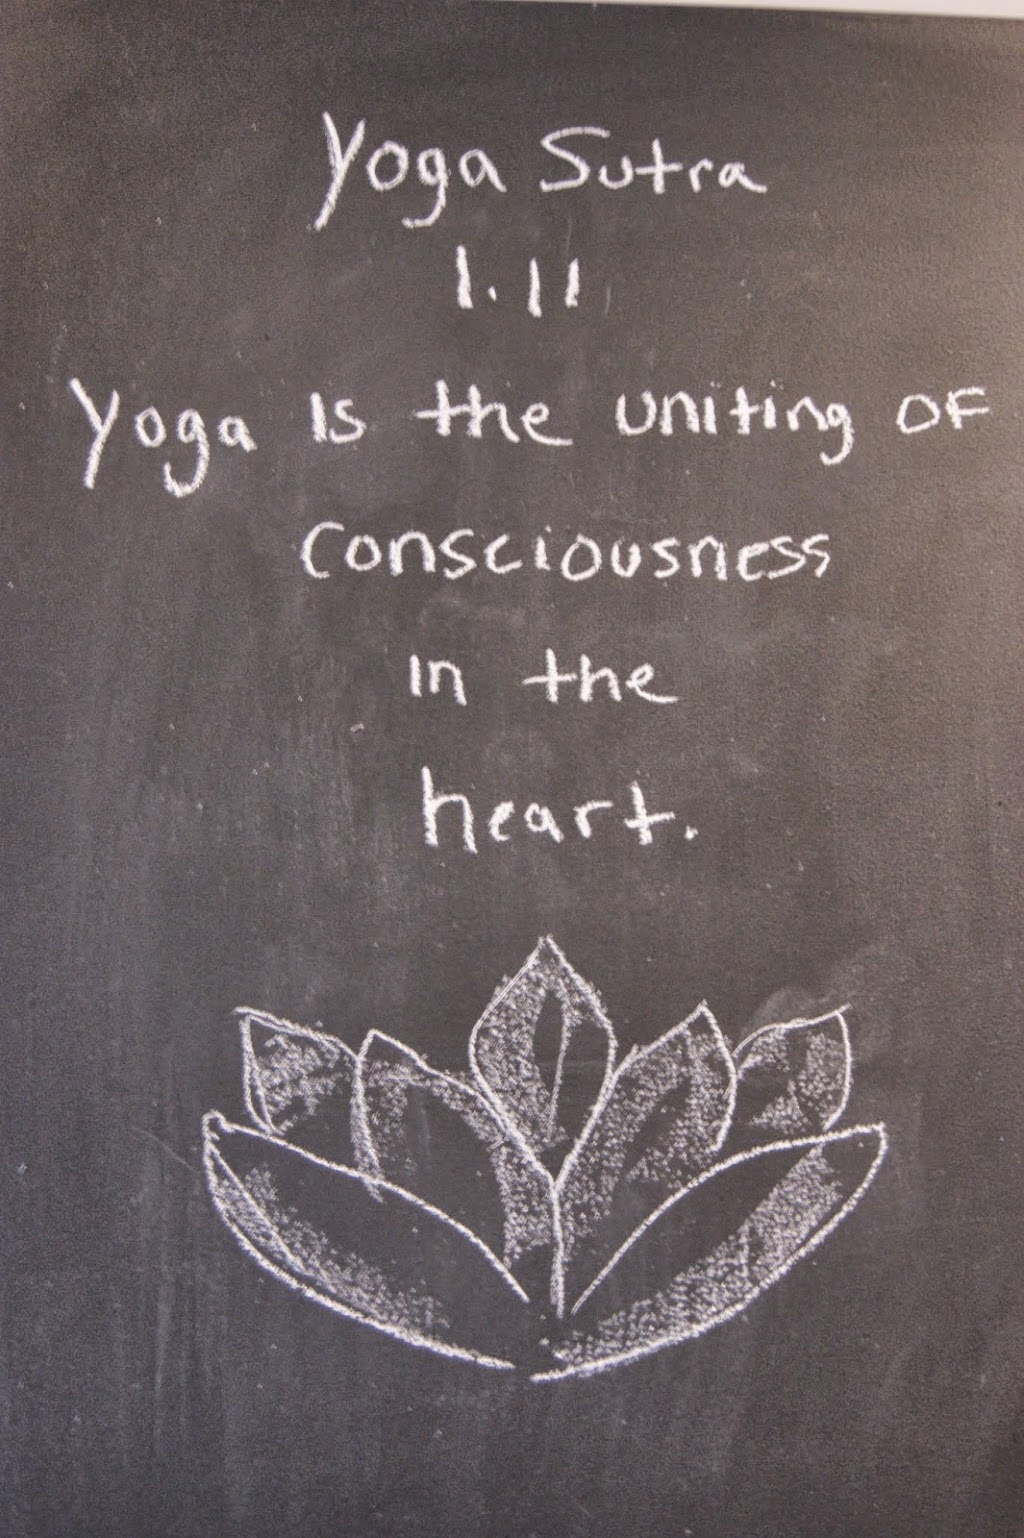 Yoga Sutra
1.11
Yoga is the uniting of
consciousness
in the
heart.